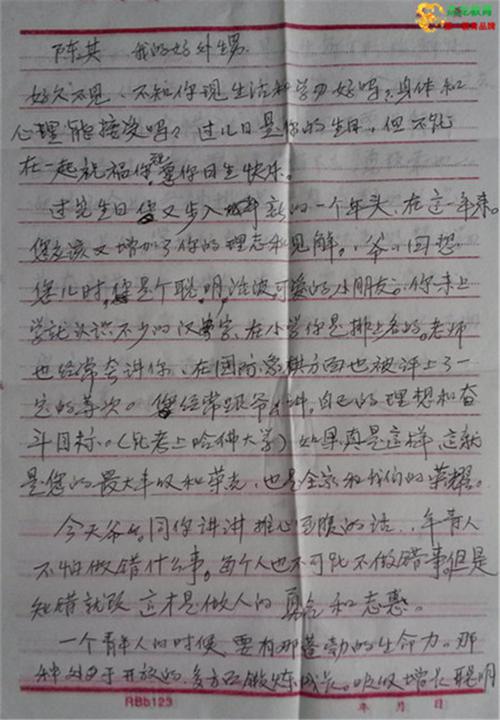 陈其 我的好外甥.
好久不见，不知你现生活和学习好吗？身体和
心理能接受吗？过几日是你的生日，但不能
在一起祝福你，愿你日生快乐。
过完生日您又步入新的一个年头，在这一年来。
您应该又增加了你的理志和见解。爷爷回想
您儿时，您是个聪明，活波，可爱的小朋友。你未上
学就认识不少的汉字，在小学你是排上名的。老师
也经常夸讲你，在国际象棋方面也被评上了一
定的等次。您经常跟爷爷讲，自已的理想和奋
斗目标。（能考上哈佛大学）如果真是这样，这就
是您的最大丰收和荣光，也是全家和我们的荣耀。
今天爷爷同你讲讲推心至腹的话，年青人
不怕做错什么事。每个人也不可能不做错事。但是
知错就改 这才是做人的 真 和志
一个青年人的时候，要有那蓬勃的生命力。那
种 开放的，多方面锻炼成长。吸收增长聪明
RBb123 年 月 日